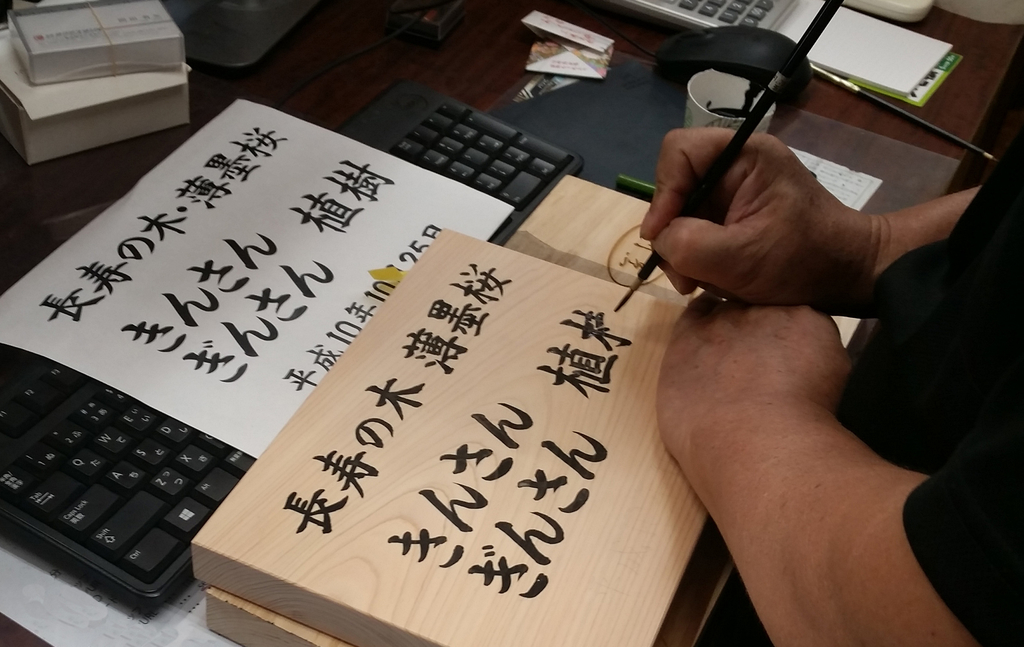 長寿の木・薄墨桜
きんさん
ぎんさん
植樹
平成10年10 25日
長寿の木 薄墨桜
きんさん
ぎんさん
植
Tab
Caps Lock
英数
Shift
Ctrl
Alt